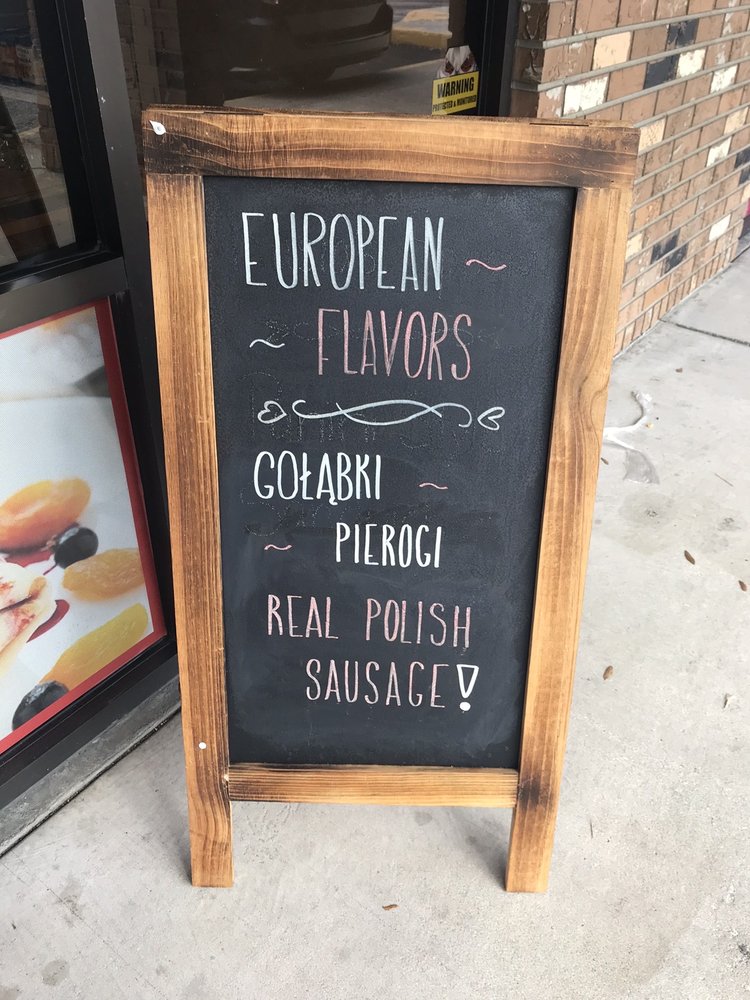 WARNING
PROTECTED & MONITORED
EUROPEAN ~
~ FLAVORS
GOŁĄBKI ~
~ PIEROGI
REAL POLISH
SAUSAGE!